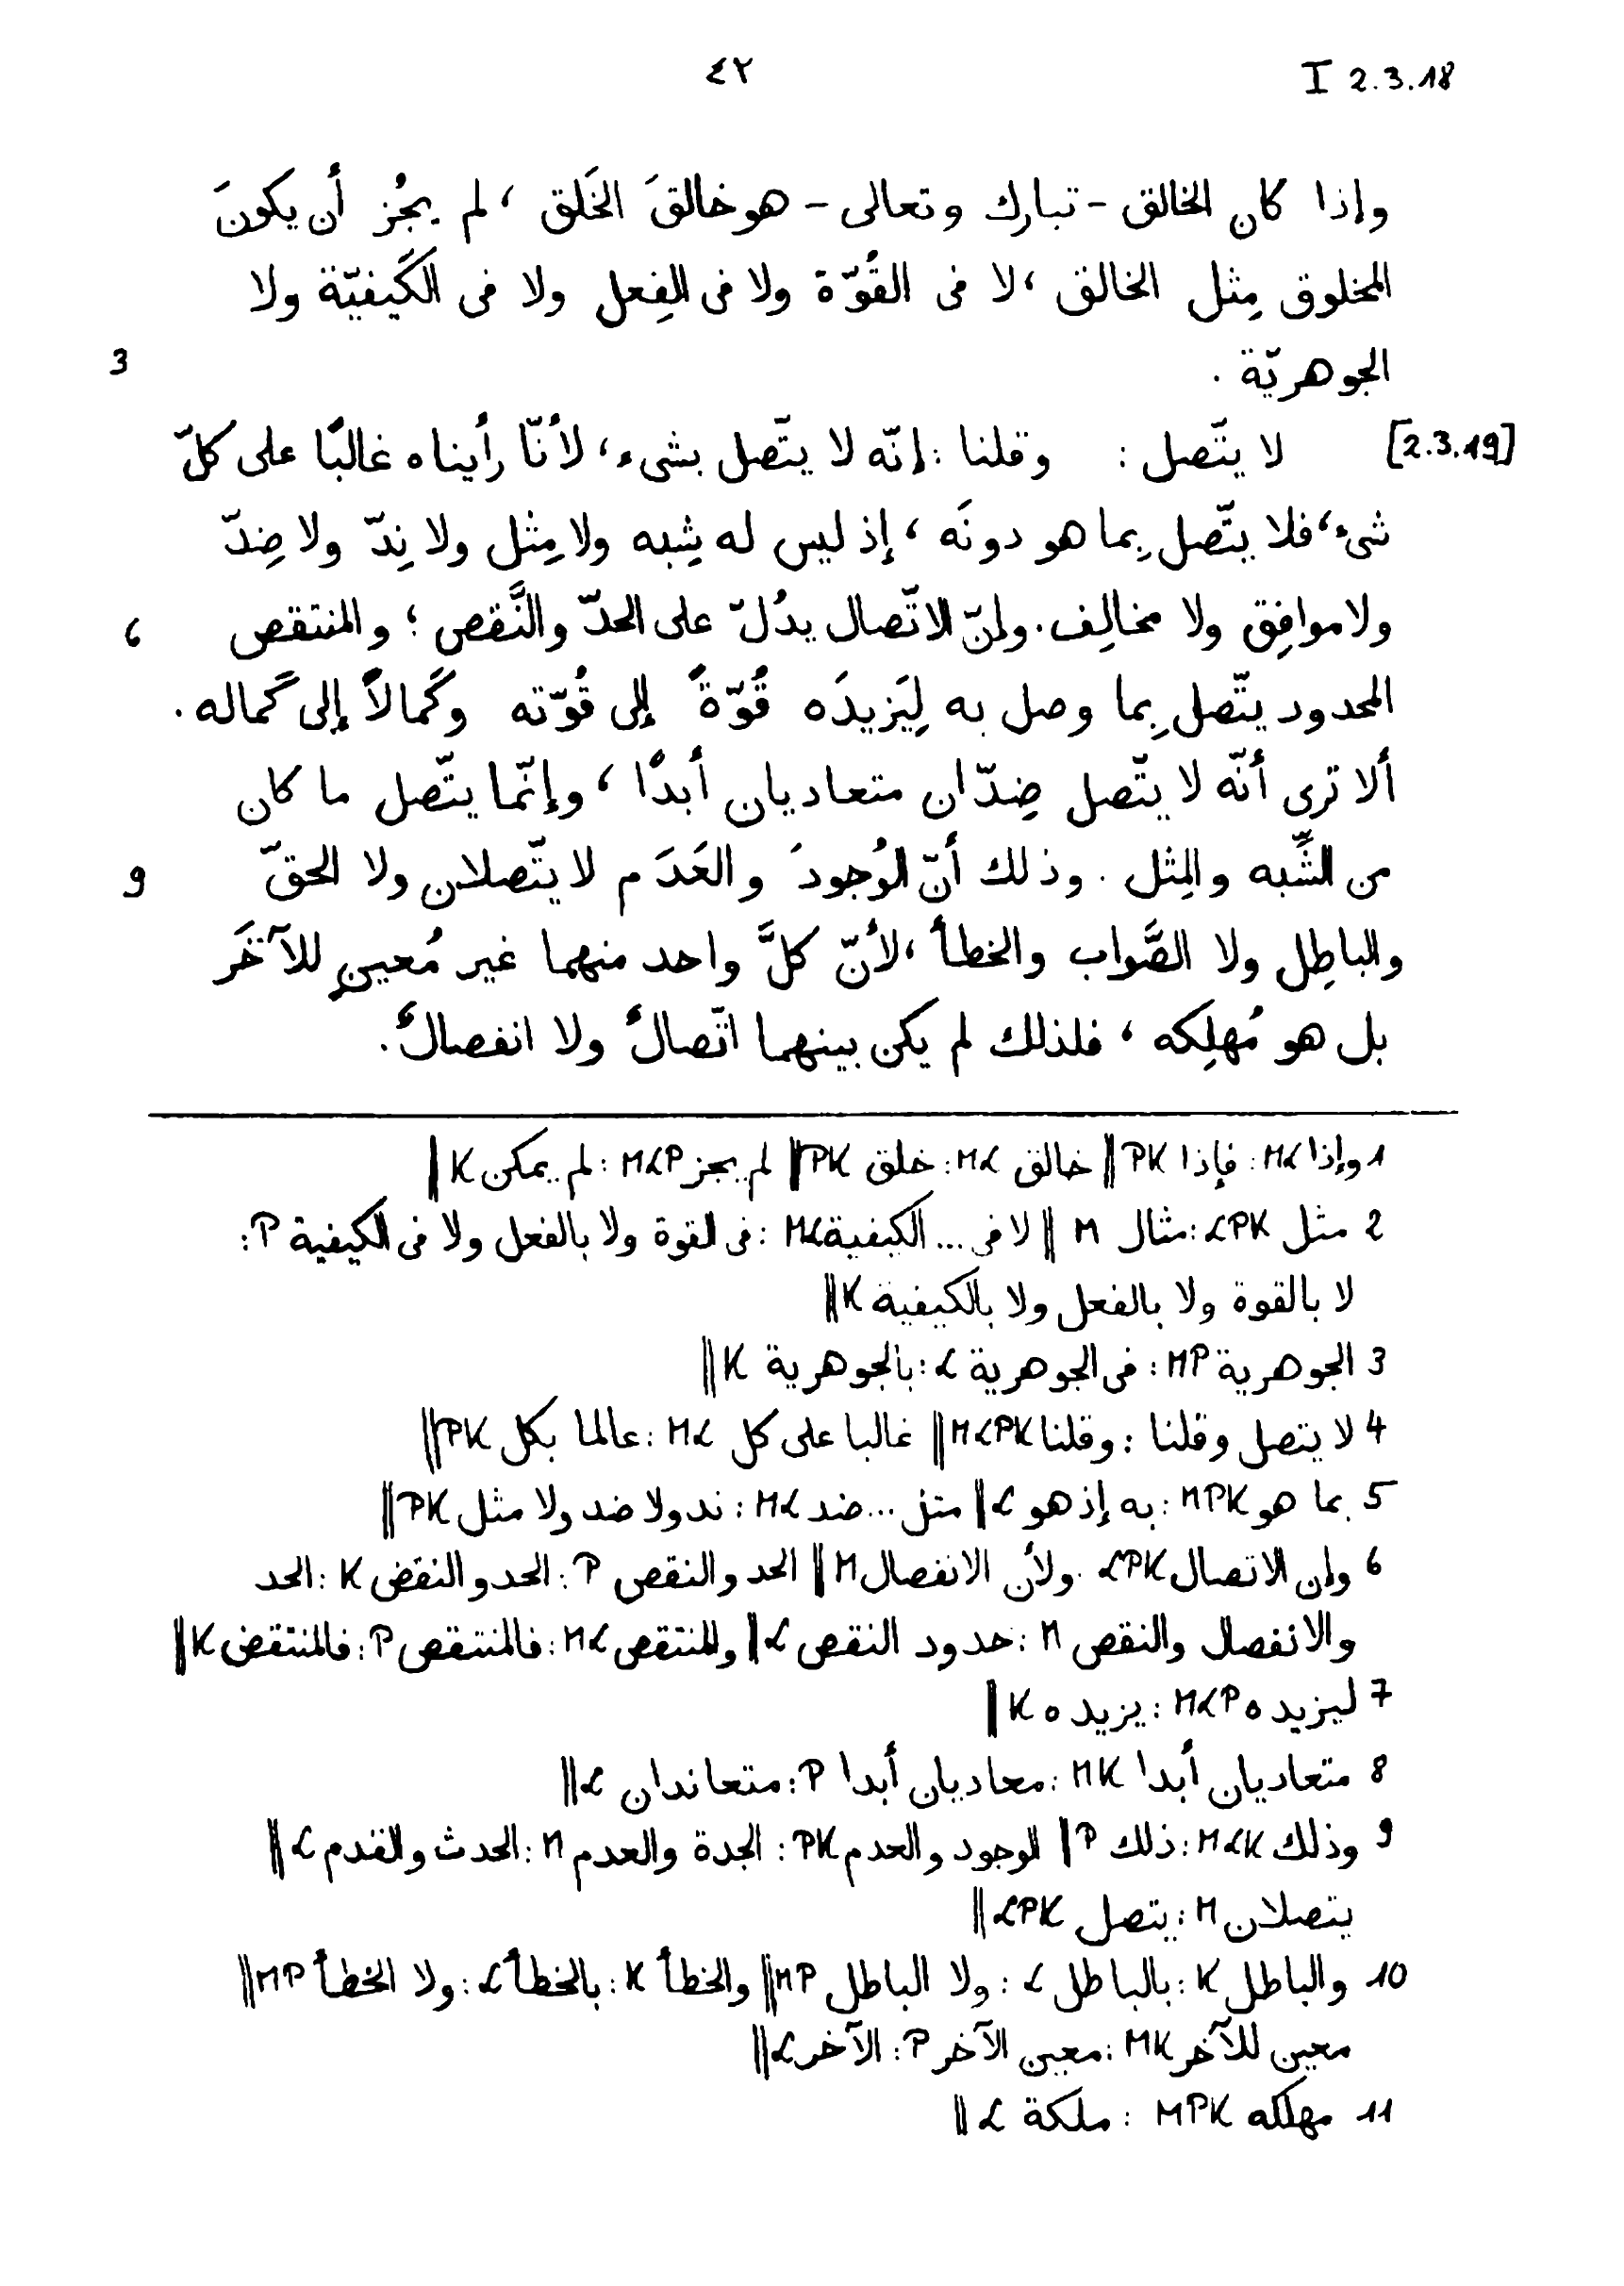 ٤٢ I 2.3.18
وإذا كان الخالق - تبارك وتعالى - هو خالقَ الخَلق ، لم يجُز أن يكونَ
المخلوق مِثل الخالق ، لا فى القُوّة ولا فى الفِعل ولا فى الكَيفيّة ولا
3 الجوهريّة .
[2.3.19] لا يتّصل : وقلنا : إنّه لا يتّصل بشىء ، لأنّا رأيناه غالبًا على كلّ
شىء ، فلا يتّصل بِما هو دونَه ، إذ ليس له شِبه ولا مِثل ولا نِدّ ولا ضِدّ
6 ولا موافِق ولا مخالِف . ولمنّ الاتّصال يدُلّ على الحدّ والنَّقص ؛ والمنتقص
المحدود يتّصل بِما وصل به لِيَزيدَه قُوّةً إلى قُوّته وكَمالاً إلى كَماله .
ألا ترى أنّه لا يتّصل ضِدّان متعاديان أبدًا ، وإنّما يتّصل ما كان
9 من الشِّبه والمِثل . وذلك أنّ الوُجودَ والعَدَم لا يتّصلان ولا الحقّ
والباطِل ولا الصَّواب والخطأ ، لأنّ كلَّ واحد منهما غير مُعينٍ للآخَر
بل هو مُهلِكه ، فلذلك لم يكن بينهما اتّصالٌ ولا انفصالٌ .
1 وإذا ML : فإذا PK || خالق ML : خلق PK || لم يجز MLP : لم يمكن K ||
2 مثل LPK : مثال M || لا فى ... الكيفية ML : فى القوة ولا بالفعل ولا فى الكيفية P :
لا بالقوة ولا بالفعل ولا بالكيفية K ||
3 الجوهرية MP : فى الجوهرية L : بالجوهرية K ||
4 لا يتصل وقلنا : وقلنا MLPK || غالبا على كل ML : عالما بكل PK ||
5 بما هو MPK : به إذ هو L || مثل ... ضد ML : ند ولا ضد ولا مثل PK ||
6 وإن الاتصال LPK : ولأن الانفصال M || الحد والنقص P : الحد والنقض K : الحد
والانفصال والنقص M : حدود النقص L || والمنتقص ML : فالمنتقص P : فالمنتقض K ||
7 ليزيده MLP : يزيده K ||
8 متعاديان أبدا MK : معاديان أبدا P : متعاندان L ||
9 وذلك MLK : ذلك P || الوجود والعدم PK : الجدة والعدم M : الحدث والقدم L ||
يتصلان M : يتصل LPK ||
10 والباطل K : بالباطل L : ولا الباطل MP || والخطأ K : بالخطأ L : ولا الخطأ MP ||
معين للآخر MK : معين الآخر P : الآخر L ||
11 مهلكه MPK : ملكة L ||